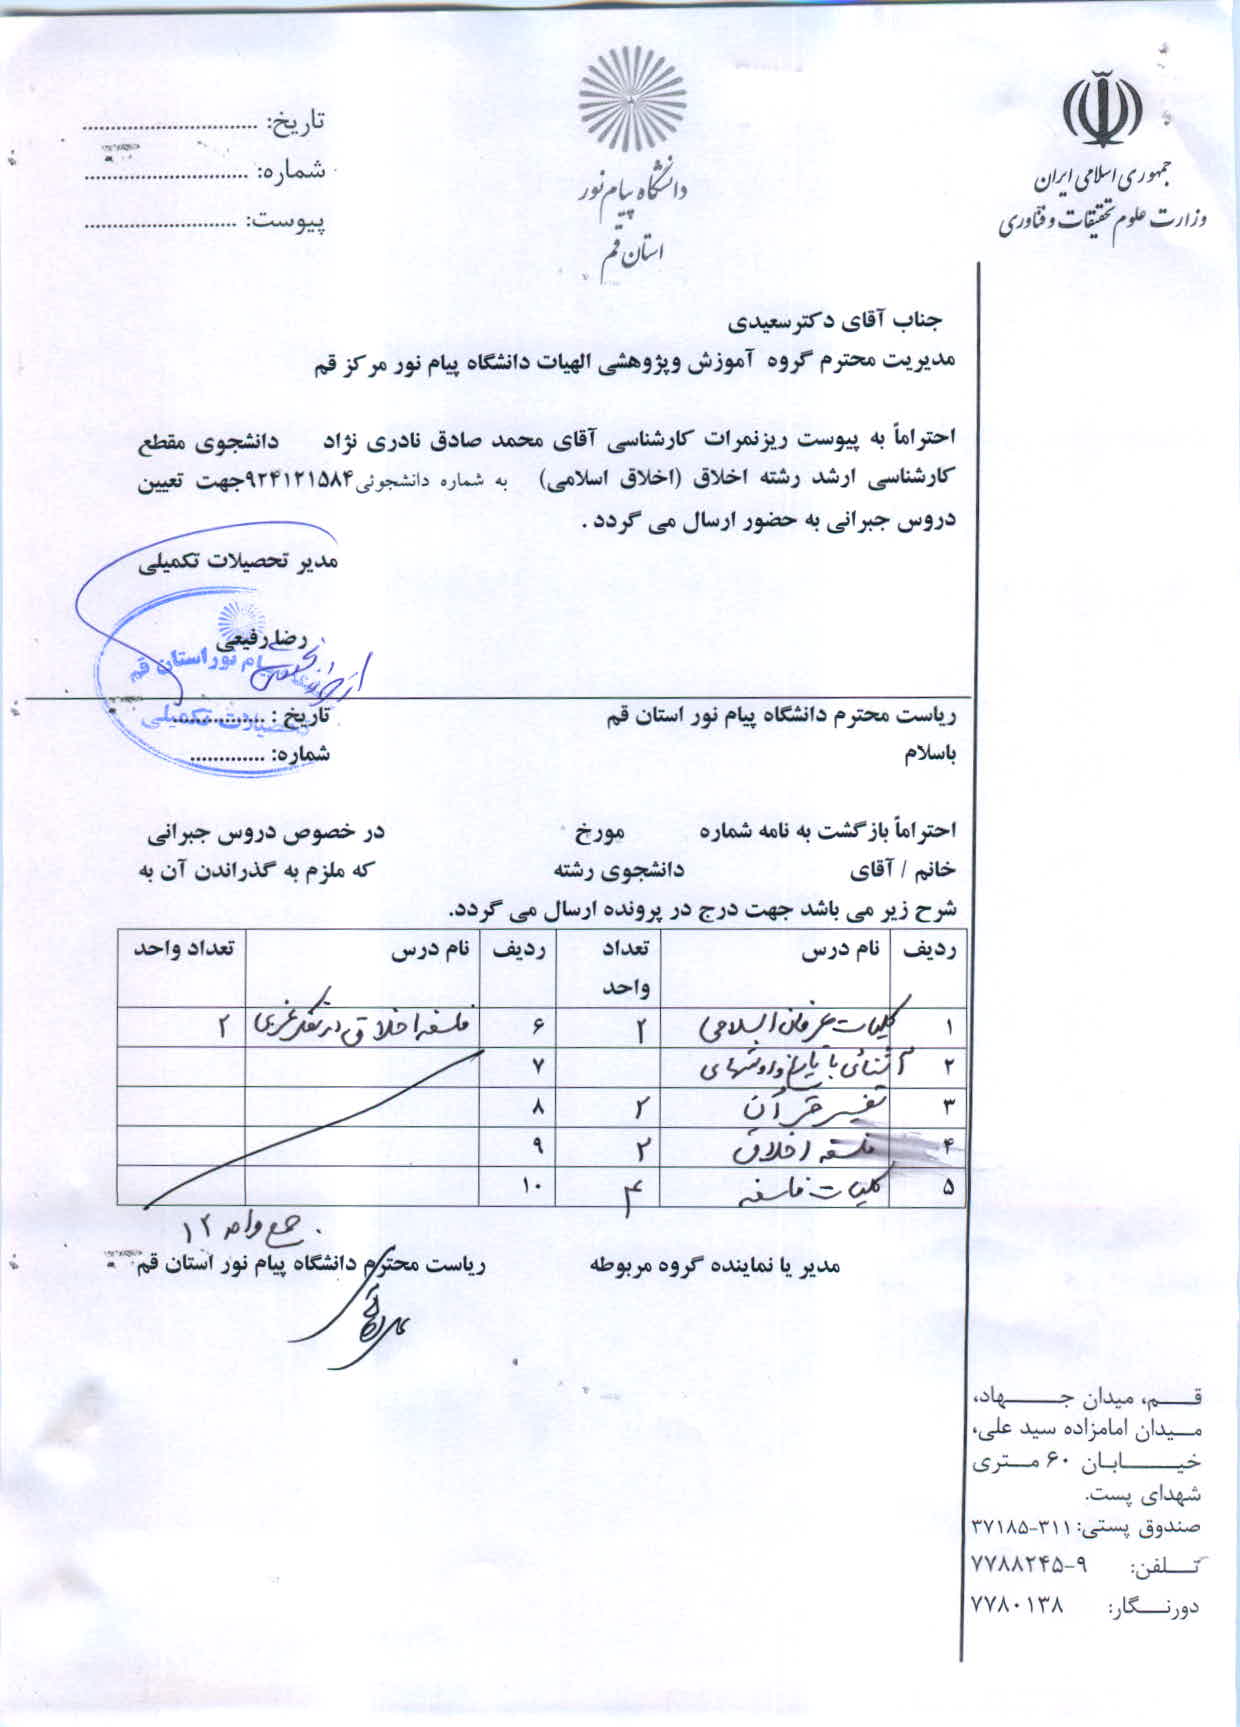 جمهوری اسلامی ایران
وزارت علوم تحقیقات و فناوری
دانشگاه پیام نور
استان قم
تاریخ: ................................
شماره: ..............................
پیوست: ............................
جناب آقای دکترسعیدی
مدیریت محترم گروه آموزش وپژوهشی الهیات دانشگاه پیام نور مرکز قم
احتراماً به پیوست ریزنمرات کارشناسی آقای محمد صادق نادری نژاد دانشجوی مقطع
کارشناسی ارشد رشته اخلاق (اخلاق اسلامی) به شماره دانشجوئی۹۲۴۱۲۱۵۸۴جهت تعیین
دروس جبرانی به حضور ارسال می گردد .
مدیر تحصیلات تکمیلی
رضا رفیعی
پیام نور استان قم
تحصیلات تکمیلی
ریاست محترم دانشگاه پیام نور استان قم
تاریخ : ................
باسلام
شماره: .............
احتراماً بازگشت به نامه شماره مورخ در خصوص دروس جبرانی
خانم / آقای دانشجوی رشته که ملزم به گذراندن آن به
شرح زیر می باشد جهت درج در پرونده ارسال می گردد.
ردیف نام درس تعداد واحد ردیف نام درس تعداد واحد
۱ کلیات عرفان اسلامی ۲ ۶ فلسفه اخلاق در تفکر غربی ۲
۲ آشنائی با تاریخ و روشهای ۷
۳ تفسیر قرآن ۲ ۸
۴ فلسفه اخلاق ۲ ۹
۵ کلیات فلسفه ۴ ۱۰
جمع واحد ۱۲
مدیر یا نماینده گروه مربوطه
ریاست محترم دانشگاه پیام نور استان قم
قم، میدان جهاد،
میدان امامزاده سید علی،
خیابان ۶۰ متری
شهدای پست.
صندوق پستی: ۳۱۱-۳۷۱۸۵
تلفن: ۹-۷۷۸۸۲۴۵
دورنگار: ۷۷۸۰۱۳۸